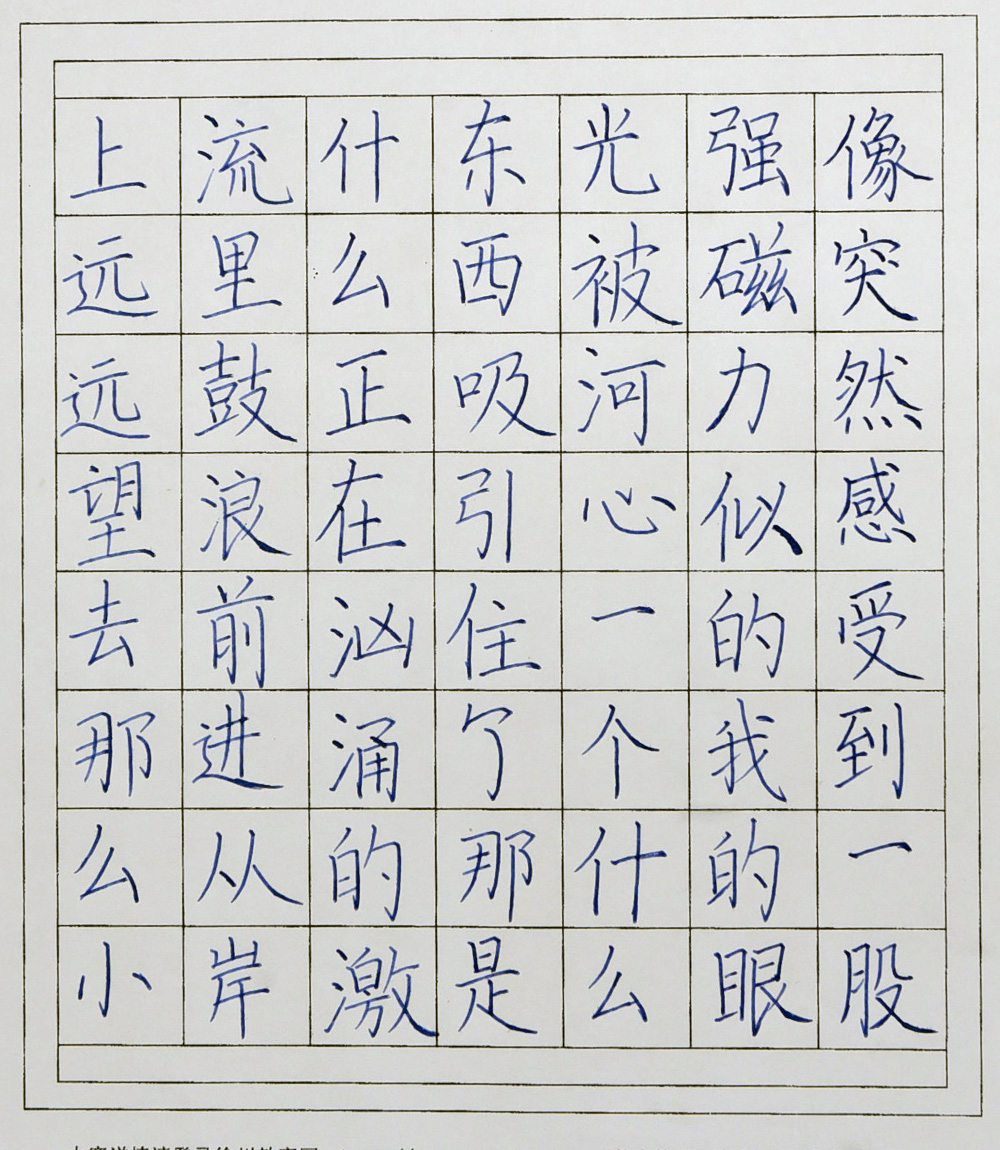 像突然感受到一股
强磁力似的我的眼
光被河心一个什么
东西吸引住了那是
什么正在汹涌的激
流里鼓浪前进从岸
上远远望去那么小